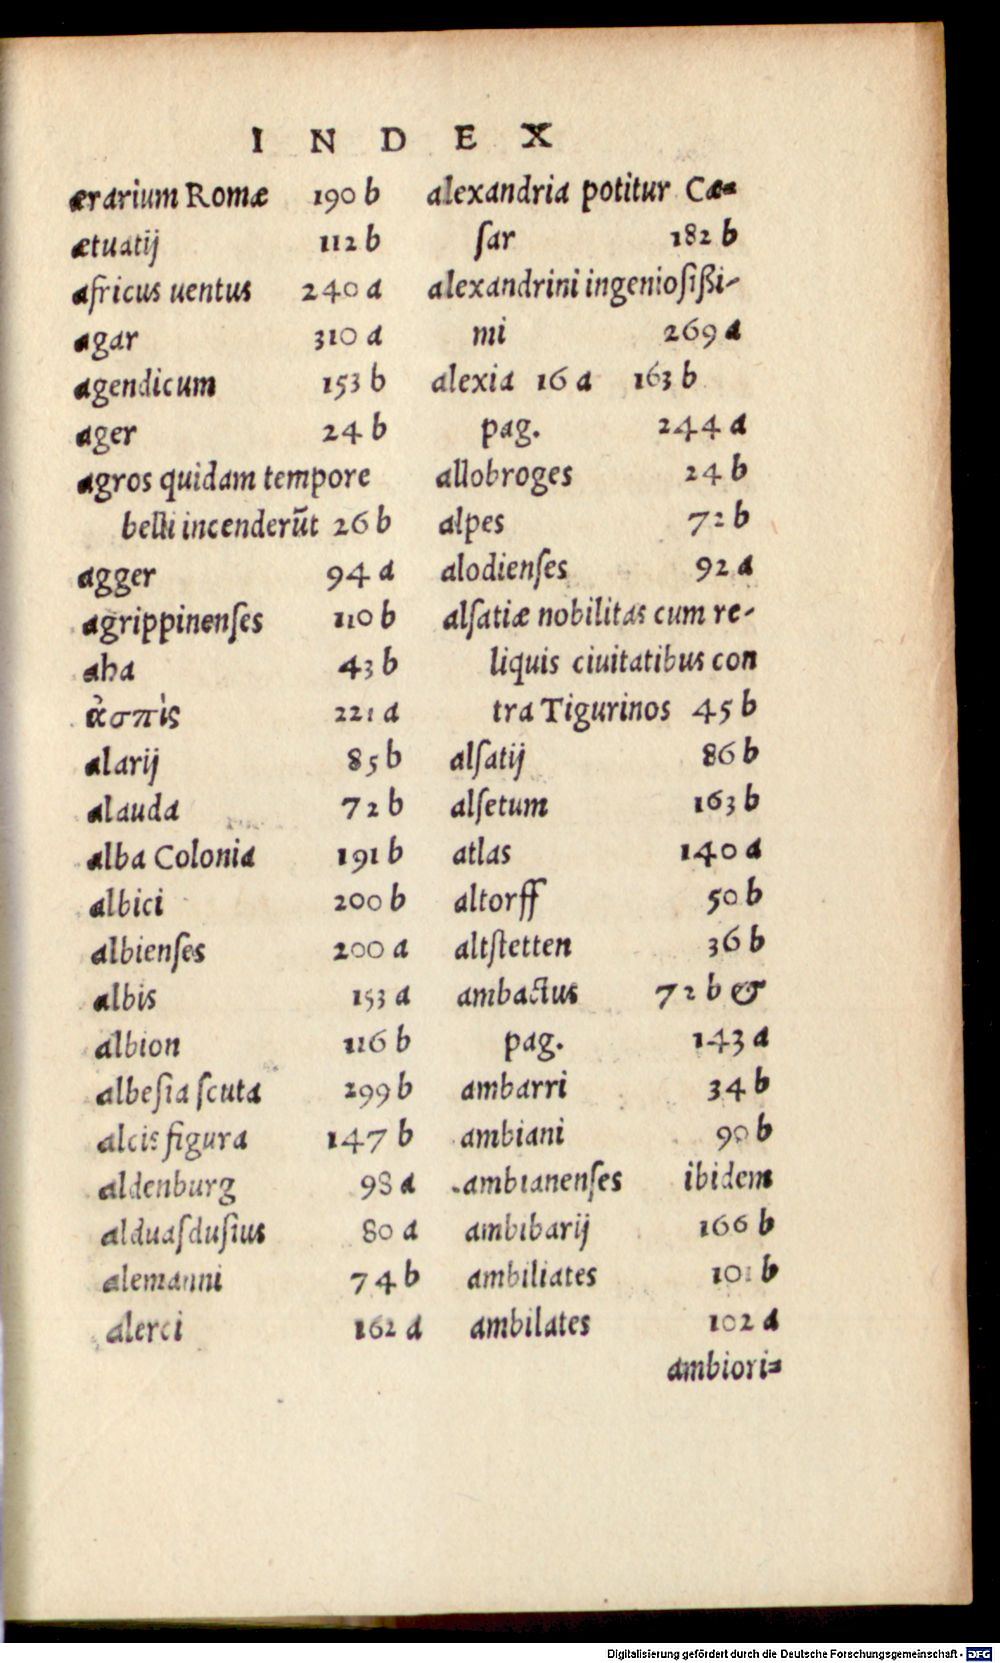 INDEX
ærarium Romæ 190 b
ætuatij 112 b
africus uentus 240 a
agar 310 a
agendicum 153 b
ager 24 b
agros quidam tempore
belli incenderūt 26 b
agger 94 a
agrippinenſes 110 b
aha 43 b
ἀσπὶς 221 a
alarij 85 b
alauda 72 b
alba Colonia 191 b
albici 200 b
albienſes 200 a
albis 153 a
albion 116 b
albeſia ſcuta 299 b
alcis figura 147 b
aldenburg 98 a
alduaſduſius 80 a
alemanni 74 b
alerci 162 a
alexandria potitur Cæ=
ſar 182 b
alexandrini ingenioſißi-
mi 269 a
alexia 16 a 163 b
pag. 244 a
allobroges 24 b
alpes 72 b
alodienſes 92 a
alſatiæ nobilitas cum re-
liquis ciuitatibus con
tra Tigurinos 45 b
alſatij 86 b
alſetum 163 b
atlas 140 a
altorff 50 b
altſtetten 36 b
ambactus 72 b &
pag. 143 a
ambarri 34 b
ambiani 90 b
ambianenſes ibidem
ambibarij 166 b
ambiliates 101 b
ambilates 102 a
ambiori=
Digitalisierung gefördert durch die Deutsche Forschungsgemeinschaft - DFG